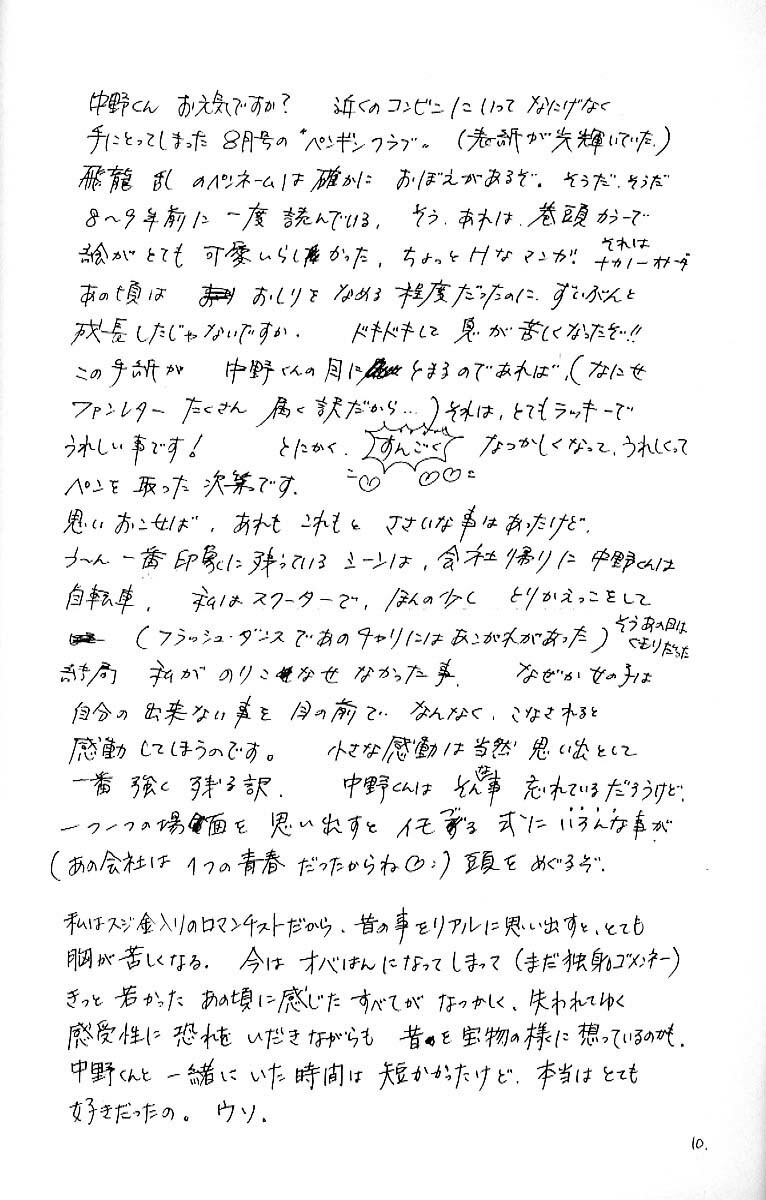 中野くん お元気ですか? 近くのコンビニにいって なにげなく
手にとってしまった 8月号の〝ペンギンクラブ〟 (表紙が光輝いていた。)
飛龍 乱 のペンネームは 確かに おぼえがあるぞ。そうだ、そうだ
8〜9年前に 一度 読んでいる。 そう、あれは、巻頭カラーで
絵がとても 可愛いらしかった、 ちょっとHなマンガ。 それは
ナカノーオサーダ
あの頃は おしりを なめる 程度だったのに、ずいぶんと
成長したじゃないですか。 ドキドキして 息が苦しくなったぞ!!
この手紙が 中野くんの目に とまるのであれば、(なにせ
ファンレター たくさん 届く訳だから…)それは、とてもラッキーで
うれしい事です! とにかく、 すんごく なつかしくなって、うれしくって
ペンを 取った 次第です。
思い おこせば、 あれも これもと ささいな事はあったけど、
う〜ん 一番 印象に残っている シーンは、会社帰りに 中野くんは
自転車、 私はスクーターで、ほんの少し とりかえっこをして
(フラッシュ・ダンスであのチャリにはあこがれがあった) そうあの日は
くもりだった
結局 私が のりこなせ なかった事。 なぜか女の子は
自分の 出来ない事を 目の前で なんなく、こなされると
感動してしまうのです。 小さな感動は当然 思い出として
一番 強く 残る訳。 中野くんは そんな事 忘れているだろうけど、
一つ一つの場面を 思い出すと イモづる 式に いろんな事が
(あの会社は 1つの青春 だったからね) 頭を めぐるぞ。
私はスジ金入りのロマンチストだから、昔の事をリアルに思い出すと、とても
胸が苦しくなる。 今は オバはんになってしまって(まだ独身。ゴメンネー)
きっと 若かった あの頃に感じた すべてが なつかしく、失われてゆく
感受性に 恐れを いだきながらも 昔を宝物の様に想っているのかも。
中野くんと 一緒にいた時間は 短かかったけど、本当はとても
好きだったの。 ウソ。
10.